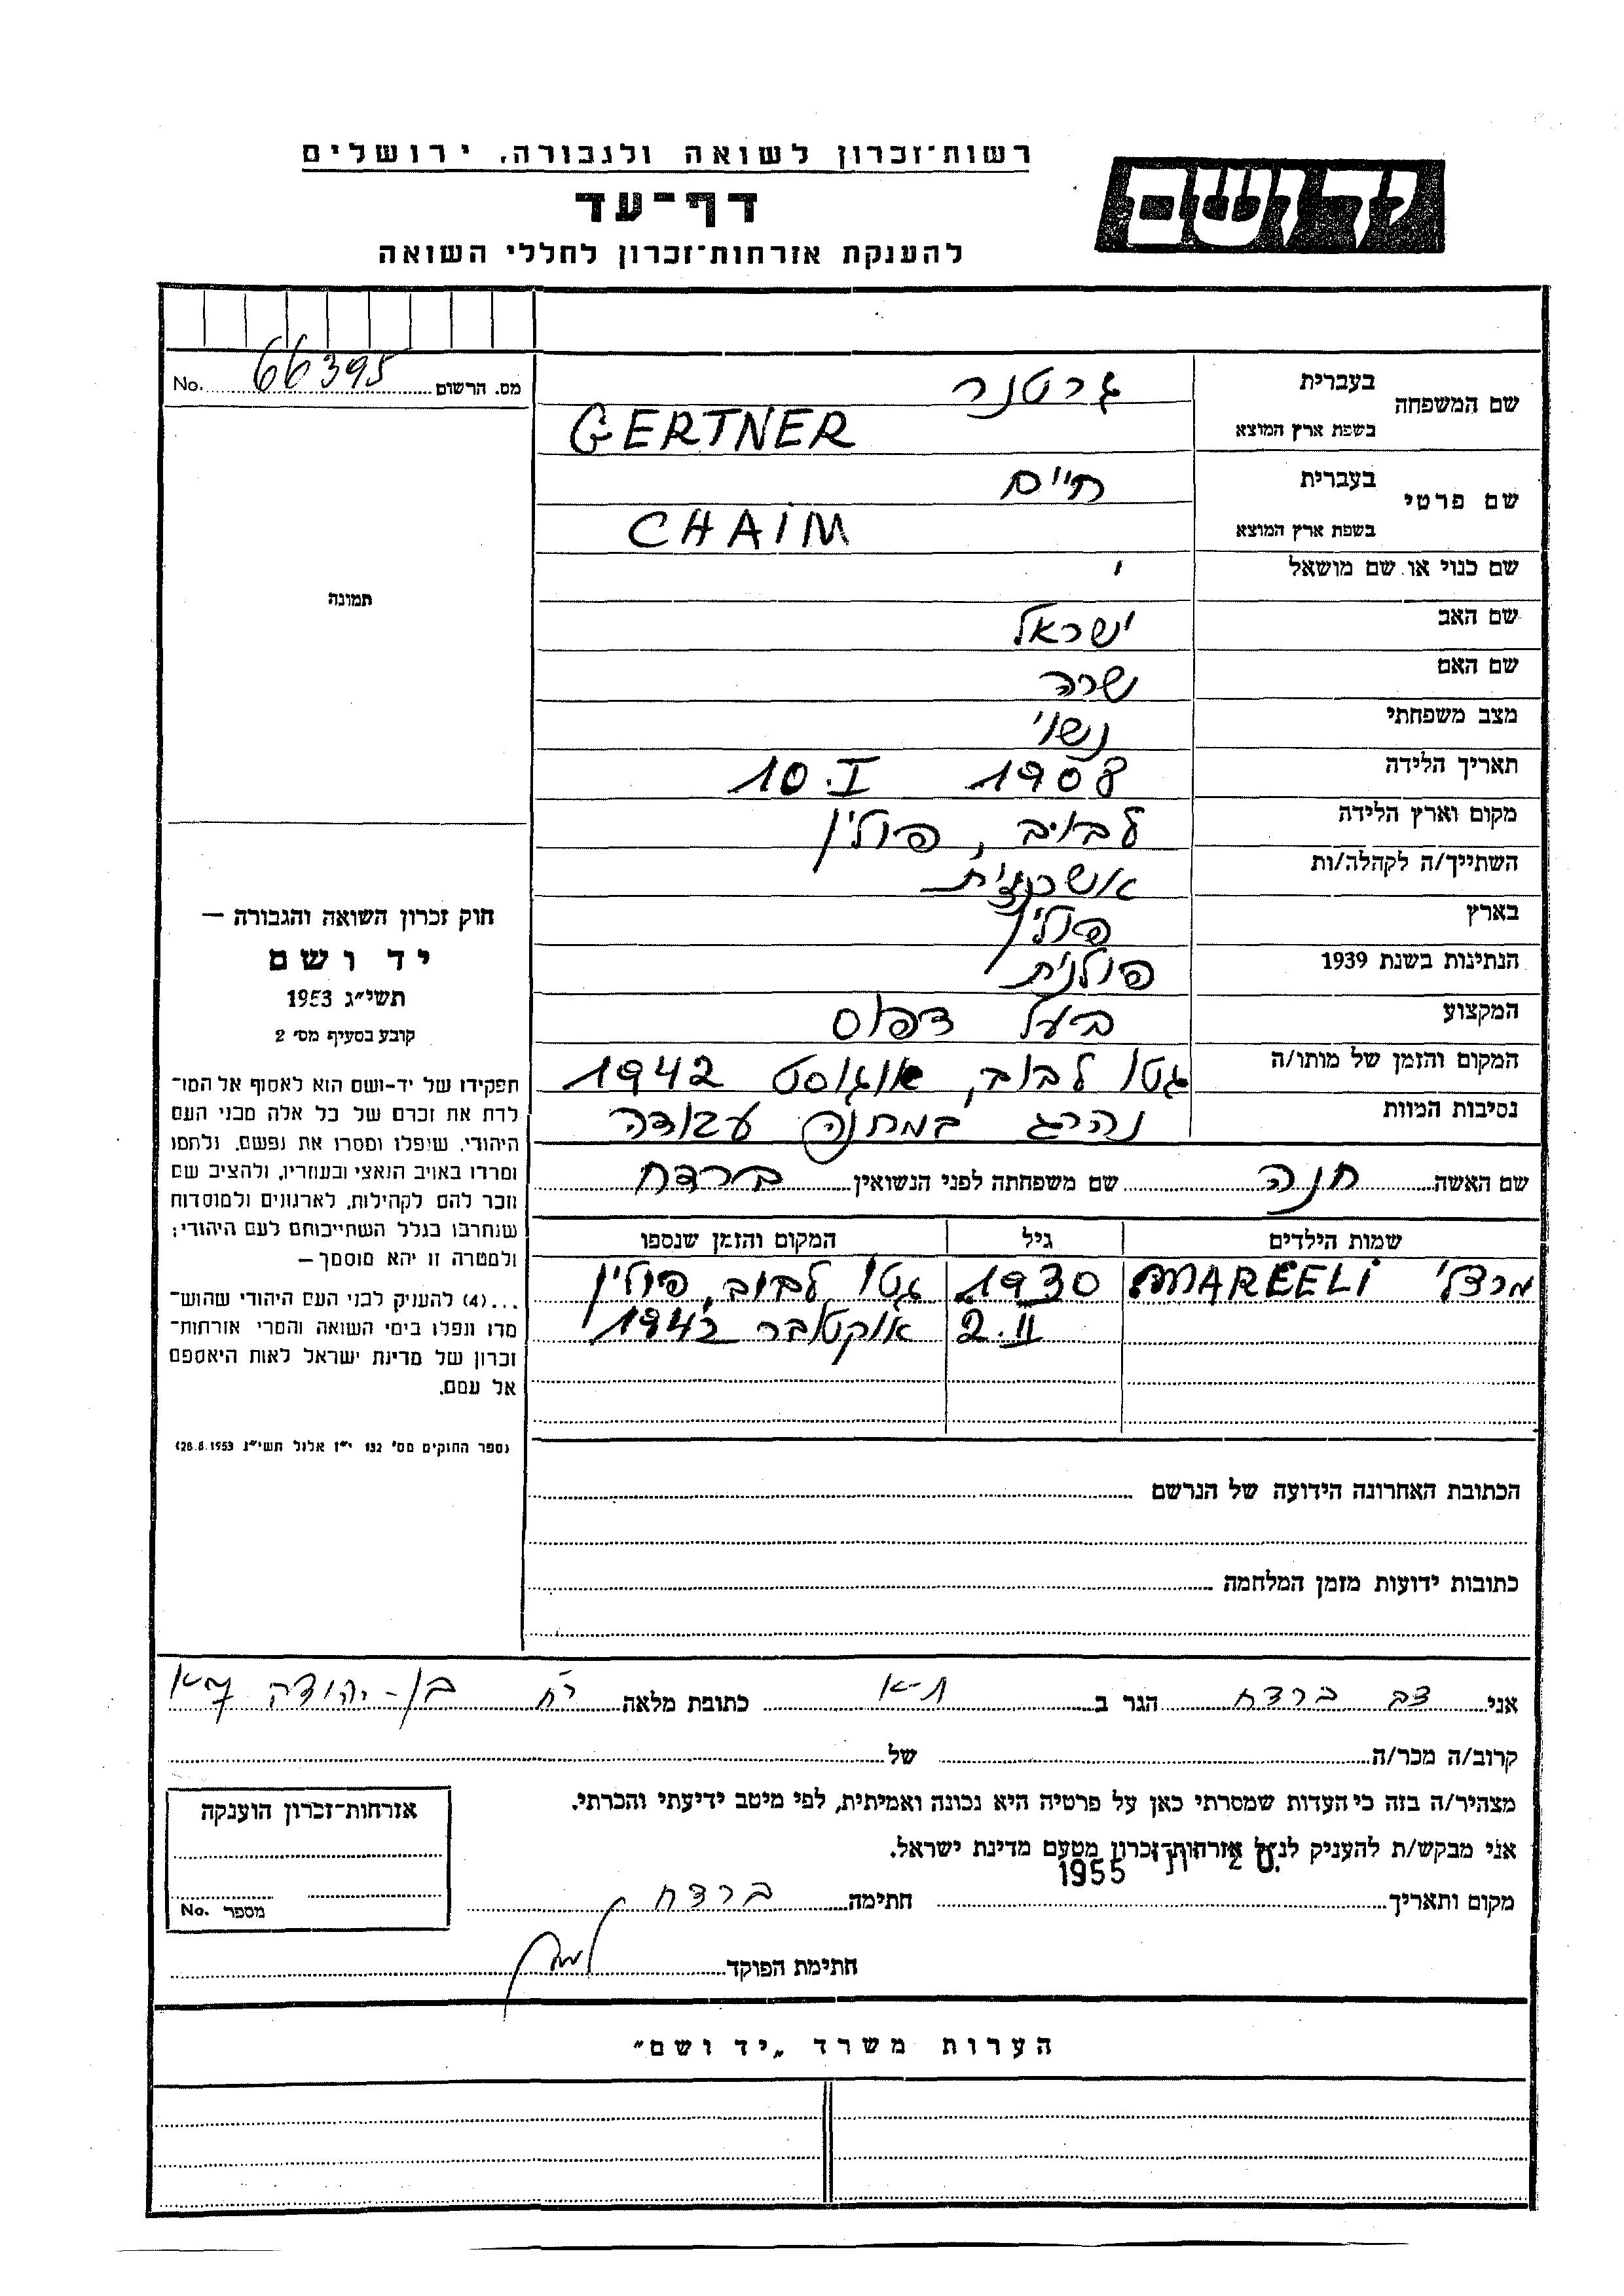 רשות־זכרון לשואה ולגבורה, ירושלים
יד ושם
דף־עד
להענקת אזרחות־זכרון לחללי השואה
מס. הרשום 66395 No.
שם המשפחה
בעברית גרטנר
בשפת ארץ המוצא GERTNER
שם פרטי
בעברית חיים
בשפת ארץ המוצא CHAIM
שם כנוי או שם מושאל
שם האב ישראל
שם האם שרה
מצב משפחתי נשוי
תאריך הלידה 1908 10.I
מקום וארץ הלידה לבוב, פולין
השתייך/ה לקהלה/ות אשכנזית
בארץ פולין
הנתינות בשנת 1939 פולנית
המקצוע בעל דפוס
המקום והזמן של מותו/ה גטו לבוב, אוגוסט 1942
נסיבות המוות נהרג במחנה עבודה
שם האשה חנה שם משפחתה לפני הנשואין ברדח
שמות הילדים גיל המקום והזמן שנספו
MAREELI 1930 גטו לבוב, פולין
2.II אוקטובר 1942
הכתובת האחרונה הידועה של הנרשם
כתובות ידועות מזמן המלחמה
תמונה
חוק זכרון השואה והגבורה –
יד ושם
תשי״ג 1953
קובע בסעיף מס׳ 2
תפקידו של יד־ושם הוא לאסוף אל המו־
לדת את זכרם של כל אלה מבני העם
היהודי, שנפלו ומסרו את נפשם, נלחמו
ומרדו באויב הנאצי ובעוזריו, ולהציב שם
וזכר להם לקהילות, לארגונים ולמוסדות
שנחרבו בגלל השתייכותם לעם היהודי;
ולמטרה זו יהא מוסמך –
...(4) להעניק לבני העם היהודי שהוש־
מדו ונפלו בימי השואה והמרי אזרחות־
זכרון של מדינת ישראל לאות היאספם
אל עמם.
(ספר החוקים מס׳ 132 י״ז אלול תשי״ג 28.8.1953)
אני צבי ברדח הגר ב ת-א כתובת מלאה בן-יהודה ת-א
קרוב/ה מכר/ה של
מצהיר/ה בזה כי העדות שמסרתי כאן על פרטיה היא נכונה ואמיתית, לפי מיטב ידיעתי והכרתי.
אני מבקש/ת להעניק לנ״ל אזרחות־זכרון מטעם מדינת ישראל.
1955
מקום ותאריך חתימה ברדח
חתימת הפוקד
אזרחות־זכרון הוענקה
מספר No.
הערות משרד „יד ושם״